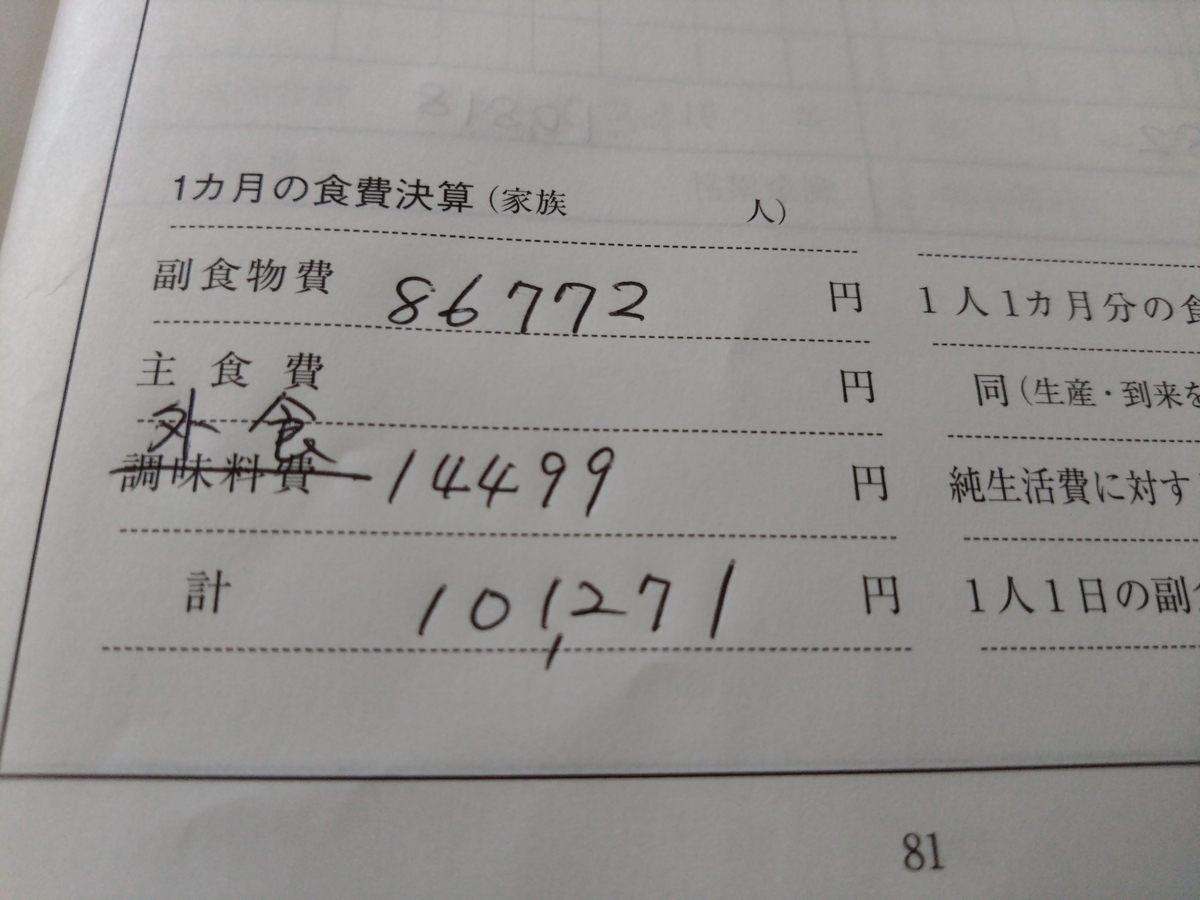 1カ月の食費決算（家族　人）
副食物費 86772 円
1人1カ月分の食
主食費 円
同（生産・到来を
外食
調味料費 14499 円
純生活費に対す
計 101,271 円
1人1日の副
81